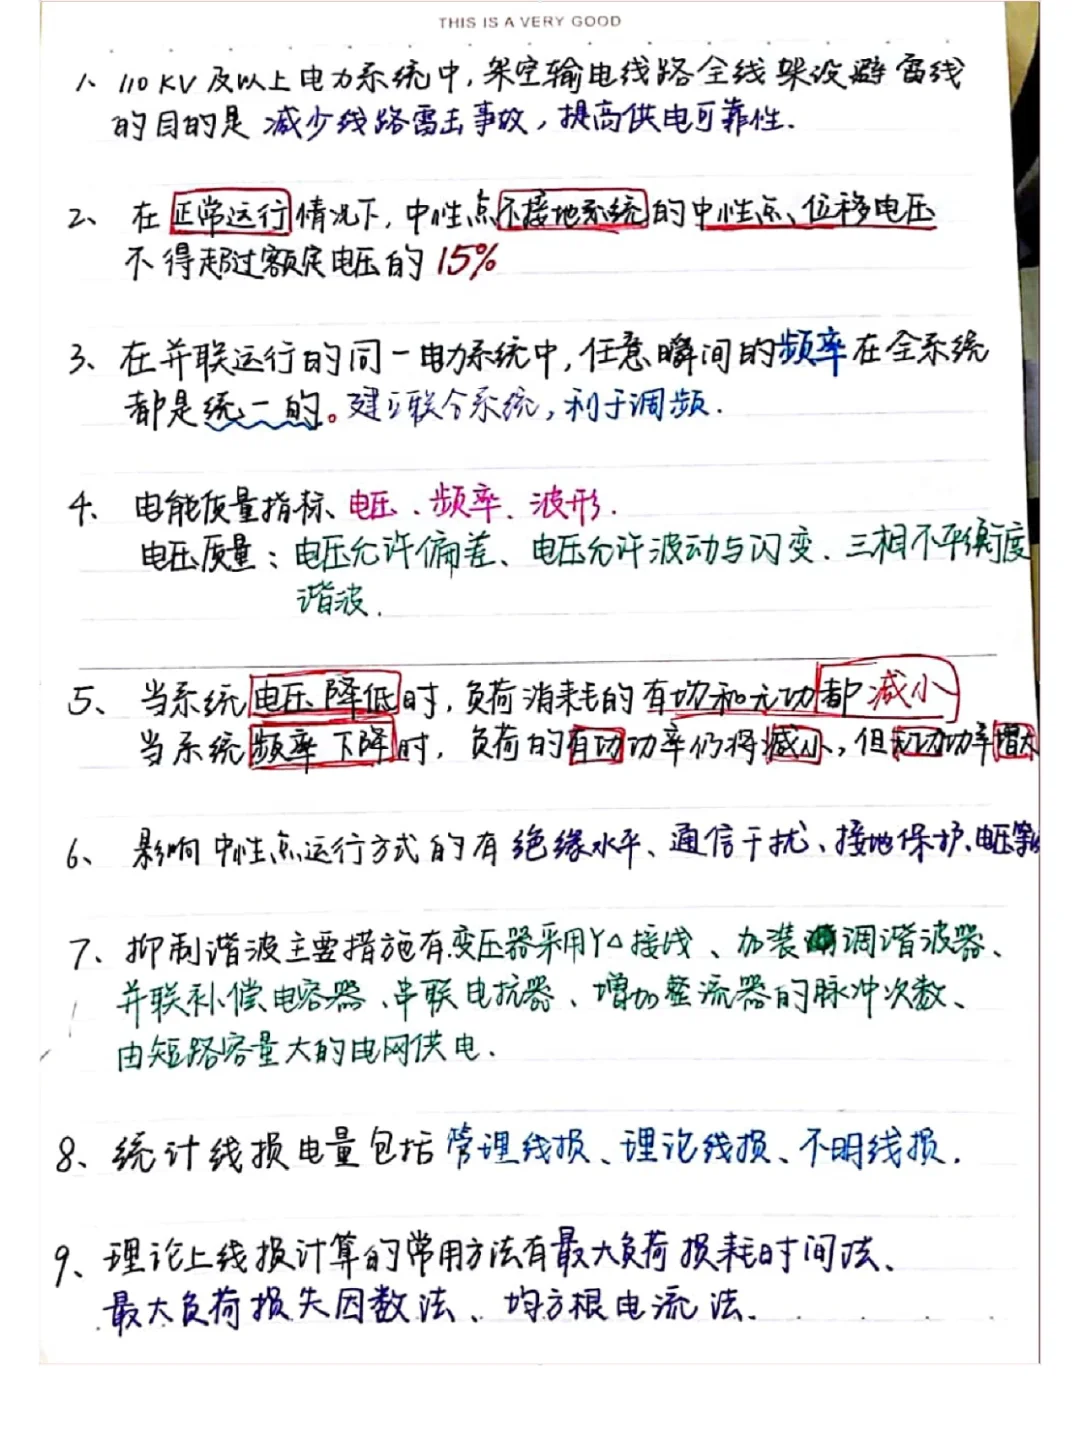 THIS IS A VERY GOOD
1、110KV及以上电力系统中，架空输电线路全线架设避雷线
的目的是 减少线路雷击事故，提高供电可靠性.
2、在正常运行情况下，中性点不接地系统的中性点、位移电压
不得超过额定电压的15%
3、在并联运行的同一电力系统中，任意瞬间的频率在全系统
都是统一的。建立联合系统，利于调频.
4、电能质量指标、电压、频率、波形.
电压质量：电压允许偏差、电压允许波动与闪变、三相不平衡度
谐波.
5、当系统电压降低时，负荷消耗的有功和无功都减小
当系统频率下降时，负荷的有功功率仍将减小，但无功功率增大
6、影响中性点运行方式的有绝缘水平、通信干扰、接地保护、电压等
7、抑制谐波主要措施有变压器采用Y△接线、加装调谐波器、
并联补偿电容器、串联电抗器、增加整流器的脉冲次数、
由短路容量大的电网供电.
8、统计线损电量包括管理线损、理论线损、不明线损.
9、理论上线损计算的常用方法有最大负荷损耗时间法、
最大负荷损失因数法、均方根电流法.